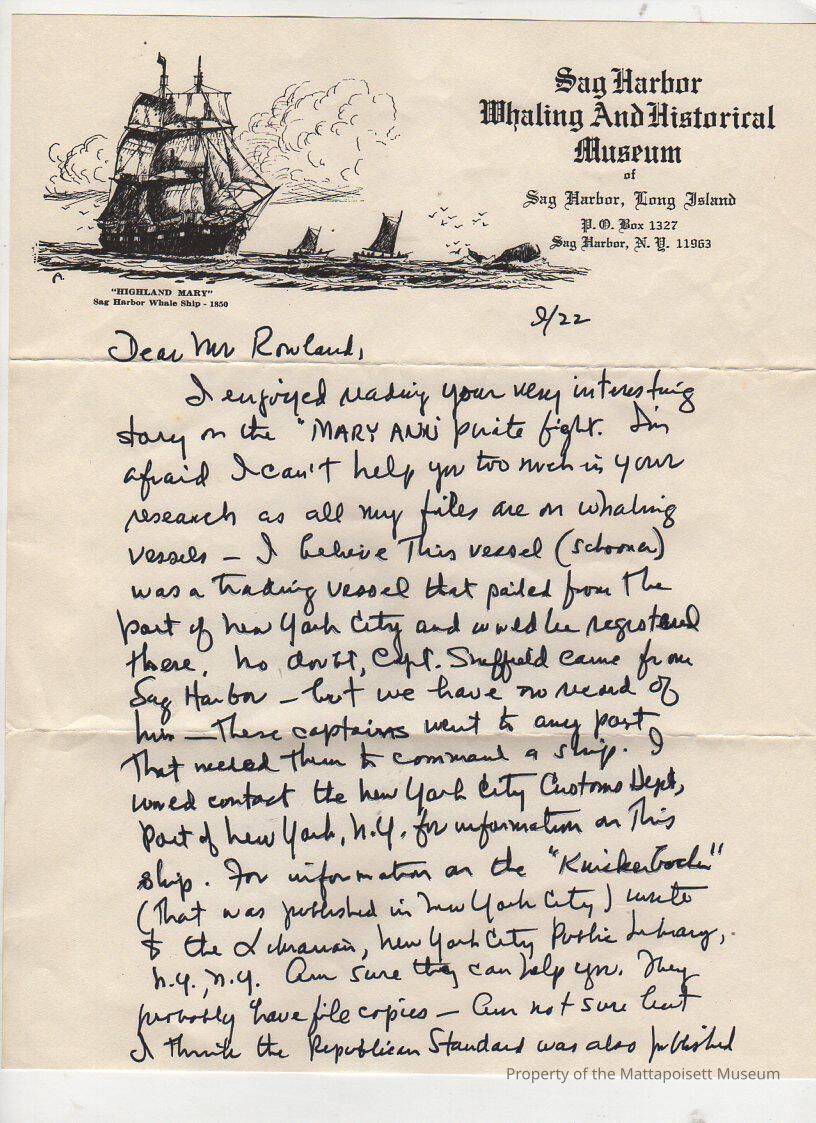 Sag Harbor
Whaling And Historical
Museum
of
Sag Harbor, Long Island
P.O. Box 1327
Sag Harbor, N.Y. 11963
"HIGHLAND MARY"
Sag Harbor Whale Ship - 1850
9/22
Dear Mr Rowland,
I enjoyed reading your very interesting
story on the "MARY ANN" pirate fight. I'm
afraid I can't help you too much in your
research as all my files are on whaling
vessels — I believe This vessel (schooner)
was a trading vessel that sailed from the
port of New York City and would be registered
there. No doubt, Capt. Sheffield came from
Sag Harbor — but we have no record of
him — These captains went to any port
That needed them to command a ship. I
would contact the New York City Customs Dept,
Port of New York, N.Y. for information on This
ship. For information on the "Knickerbocker"
(That was published in New York City) write
to the Librarian, New York City Public Library,
N.Y., N.Y. Am sure they can help you. They
probably have file copies — Am not sure but
I think the Republican Standard was also published
Property of the Mattapoisett Museum